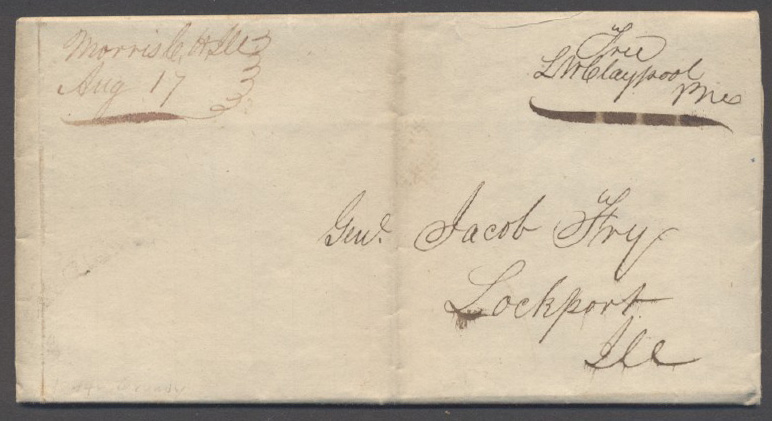 Morris C. H. Ill
Aug 17
Free
L W Claypool
PM
Genl. Jacob Fry
Lockport
Ill